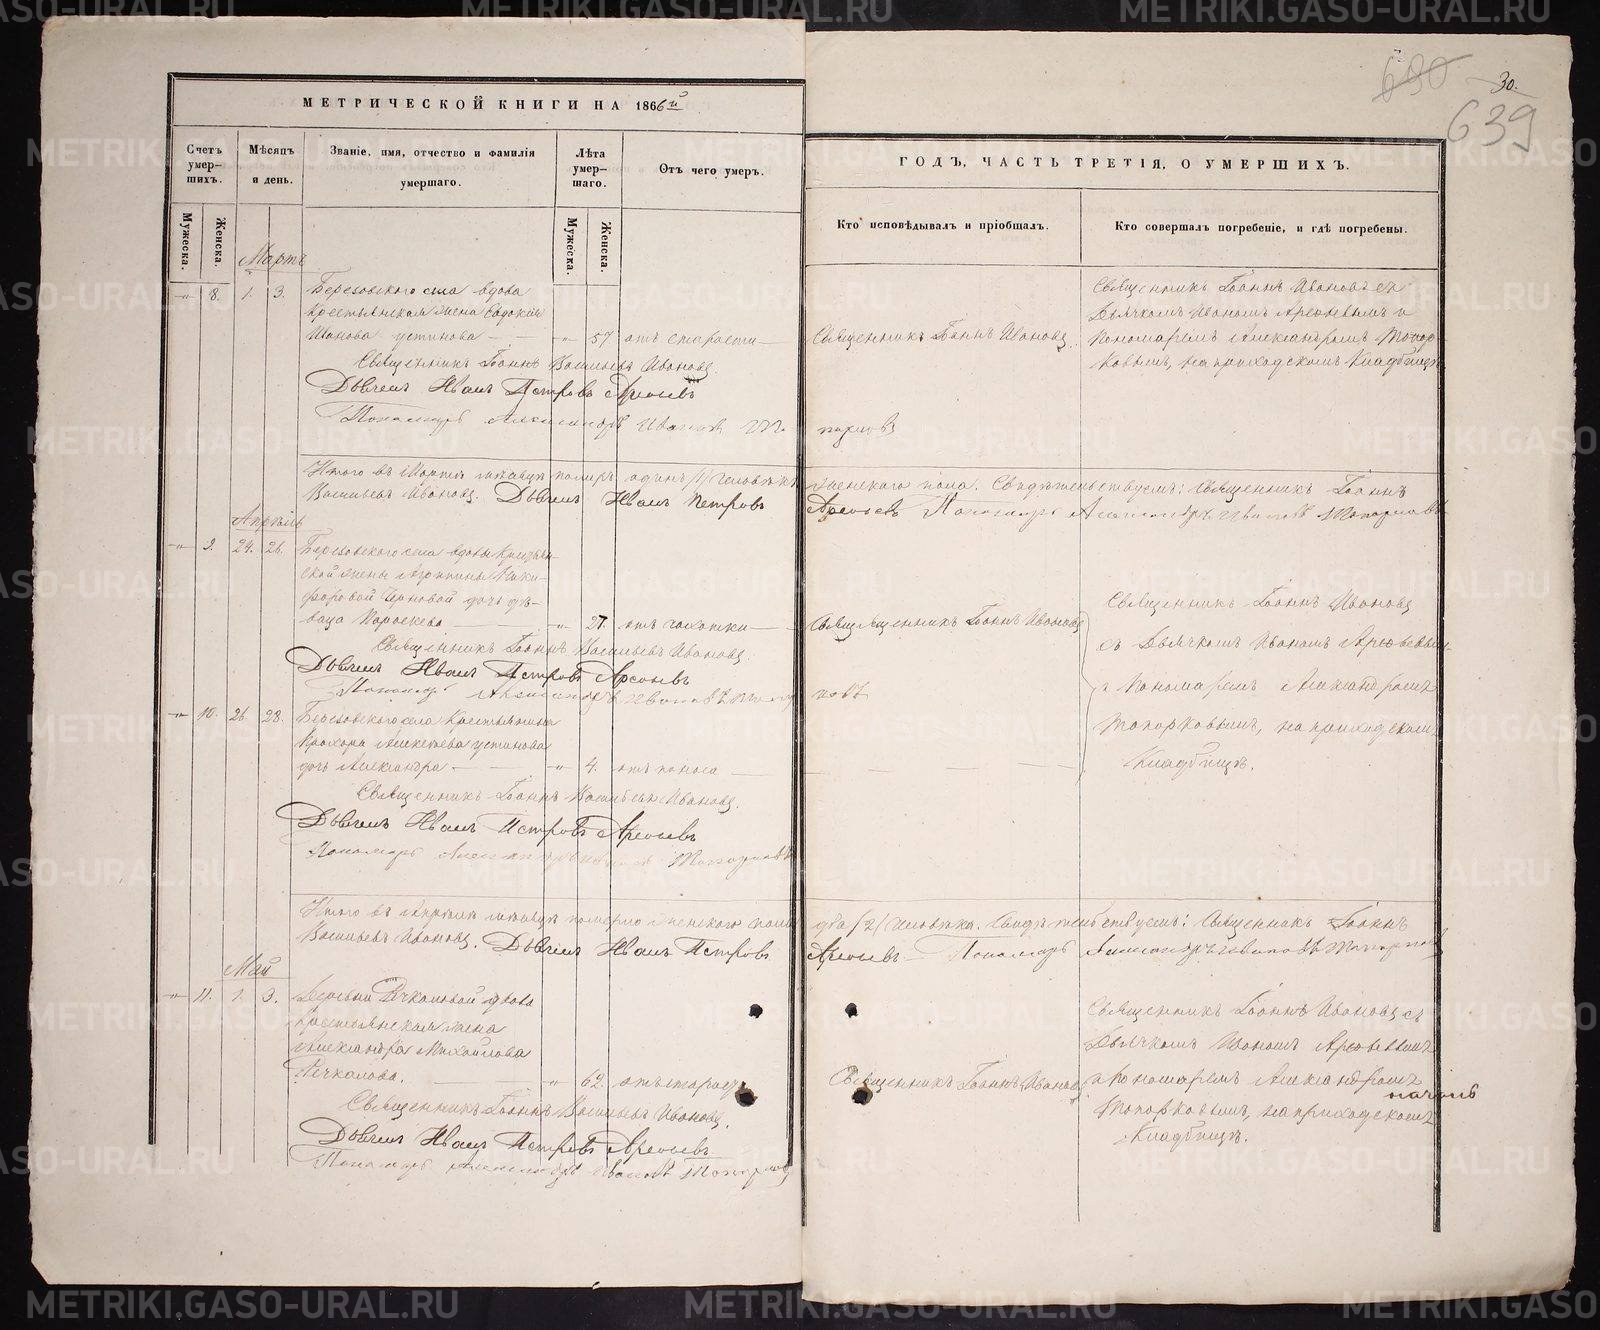 МЕТРИЧЕСКОЙ КНИГИ НА 1866й
Счетъ умер-шихъ.
Мѣсяцъ и день.
Званіе, имя, отчество и фамилія умершаго.
Лѣта умер-шаго.
Отъ чего умеръ.
Мужеска.
Женска.
Мужеска.
Женска.
Мартъ
8. 1. 3. Березовскаго села вдова
Крестьянская жена Евдокія
Иванова Устинова 57 отъ старости
Священникъ Іоаннъ Васильевъ Ивановъ.
Дьячекъ Иванъ Петровъ Арефьевъ
Пономарь Александръ Ивановъ
Итого въ Мартѣ мѣсяцѣ померъ одинъ /1/ человѣкъ
Васильевъ Ивановъ. Дьячекъ Иванъ Петровъ
Апрѣль
9. 24. 26. Березовскаго села вдовы Крестьян-
ской жены Агрипины Ники-
форовой дочь дѣ-
вица Параскева 27. отъ чахотки
Священникъ Іоаннъ Васильевъ Ивановъ.
Дьячекъ Иванъ Петровъ Арефьевъ
Пономарь Александръ Ивановъ
10. 26. 28. Березовскаго села Крестьянина
Прохора Алексѣева Устинова
дочь Александра 4. отъ поноса
Священникъ Іоаннъ Васильевъ Ивановъ.
Дьячекъ Иванъ Петровъ Арефьевъ
Пономарь Александръ Ивановъ Топорковъ
Итого въ Апрѣлѣ мѣсяцѣ померло женского пола
Васильевъ Ивановъ. Дьячекъ Иванъ Петровъ
Май
11. 1. 3. Деревни Речкаловой вдова
Крестьянская жена
Александра Михайлова
Речкалова. 62. отъ старости
Священникъ Іоаннъ Васильевъ Ивановъ.
Дьячекъ Иванъ Петровъ Арефьевъ
Пономарь Александръ Ивановъ Топорковъ
630 30.
639
ГОДЪ, ЧАСТЬ ТРЕТІЯ, О УМЕРШИХЪ.
Кто исповѣдывалъ и пріобщалъ.
Кто совершалъ погребеніе, и гдѣ погребены.
Священникъ Іоаннъ Ивановъ съ
Дьячкомъ Иваномъ Арефьевымъ и
Священникъ Іоаннъ Ивановъ. Пономаремъ Александромъ Топор
ковымъ, на приходскомъ Кладбищѣ
женского пола. Свидѣтельствуемъ: Священникъ Іоаннъ
Арефьевъ Пономарь Александръ Ивановъ Топорковъ
Священникъ Іоаннъ Ивановъ
Священникъ Іоаннъ Ивановъ
съ Дьячкомъ Иваномъ Арефьевымъ
и Пономаремъ Александромъ
Топорковымъ, на приходскомъ
Кладбищѣ.
два /2/ человѣка. Свидѣтельствуемъ: Священникъ Іоаннъ
Арефьевъ Пономарь Александръ Ивановъ Топорковъ
Священникъ Іоаннъ Ивановъ съ
Дьячкомъ Иваномъ Арефьевымъ
Священникъ Іоаннъ Ивановъ и Пономаремъ Александромъ
Топорковымъ, на приходскомъ
Кладбищѣ.
METRIKI.GASO-URAL.RU